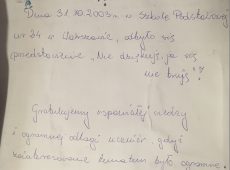 Dnia 31.10.2003r. w Szkole Podstawowej
nr 34 w Warszawie, odbyło się
przedstawienie „Nie dziękuję, ja się
nie truję"!
Gratulujemy wspaniałej wiedzy
i ogromnej odwagi uczniów, gdyż
zainteresowanie tematem było ogromne.